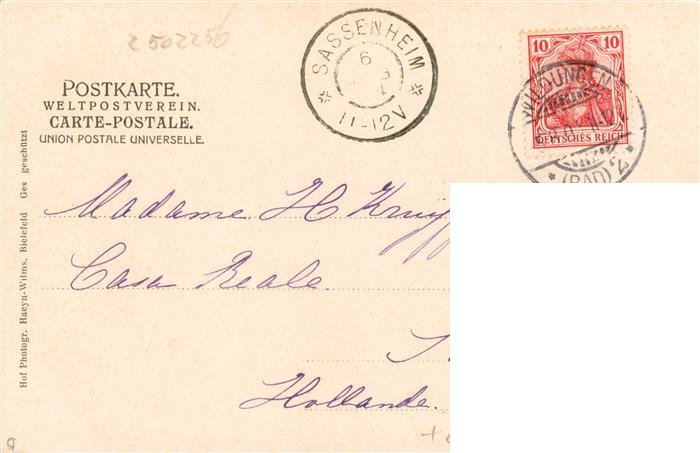 2502256
SASSENHEIM
6
11-12V
10 10
DEUTSCHES REICH
WILDUNGEN
(BAD) 2
POSTKARTE.
WELTPOSTVEREIN.
CARTE-POSTALE.
UNION POSTALE UNIVERSELLE.
Hof Photogr. Haeyn-Wilms, Bielefeld Ges geschützt
Madame H
Casa Reale
Hollande.